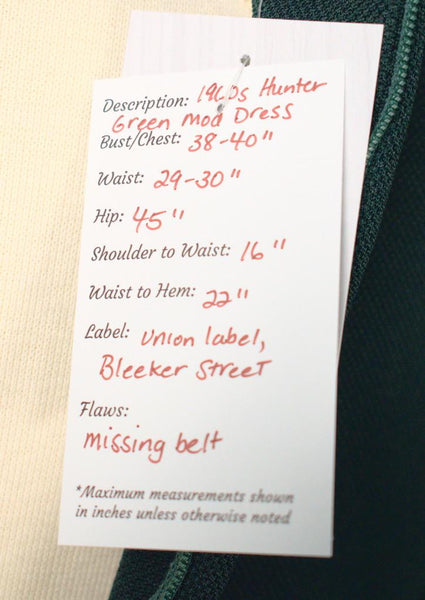 Description: 1960s Hunter
Green Mod Dress
Bust/Chest: 38-40"
Waist: 29-30"
Hip: 45"
Shoulder to Waist: 16"
Waist to Hem: 22"
Label: Union label,
Bleeker Street
Flaws:
missing belt
*Maximum measurements shown
in inches unless otherwise noted